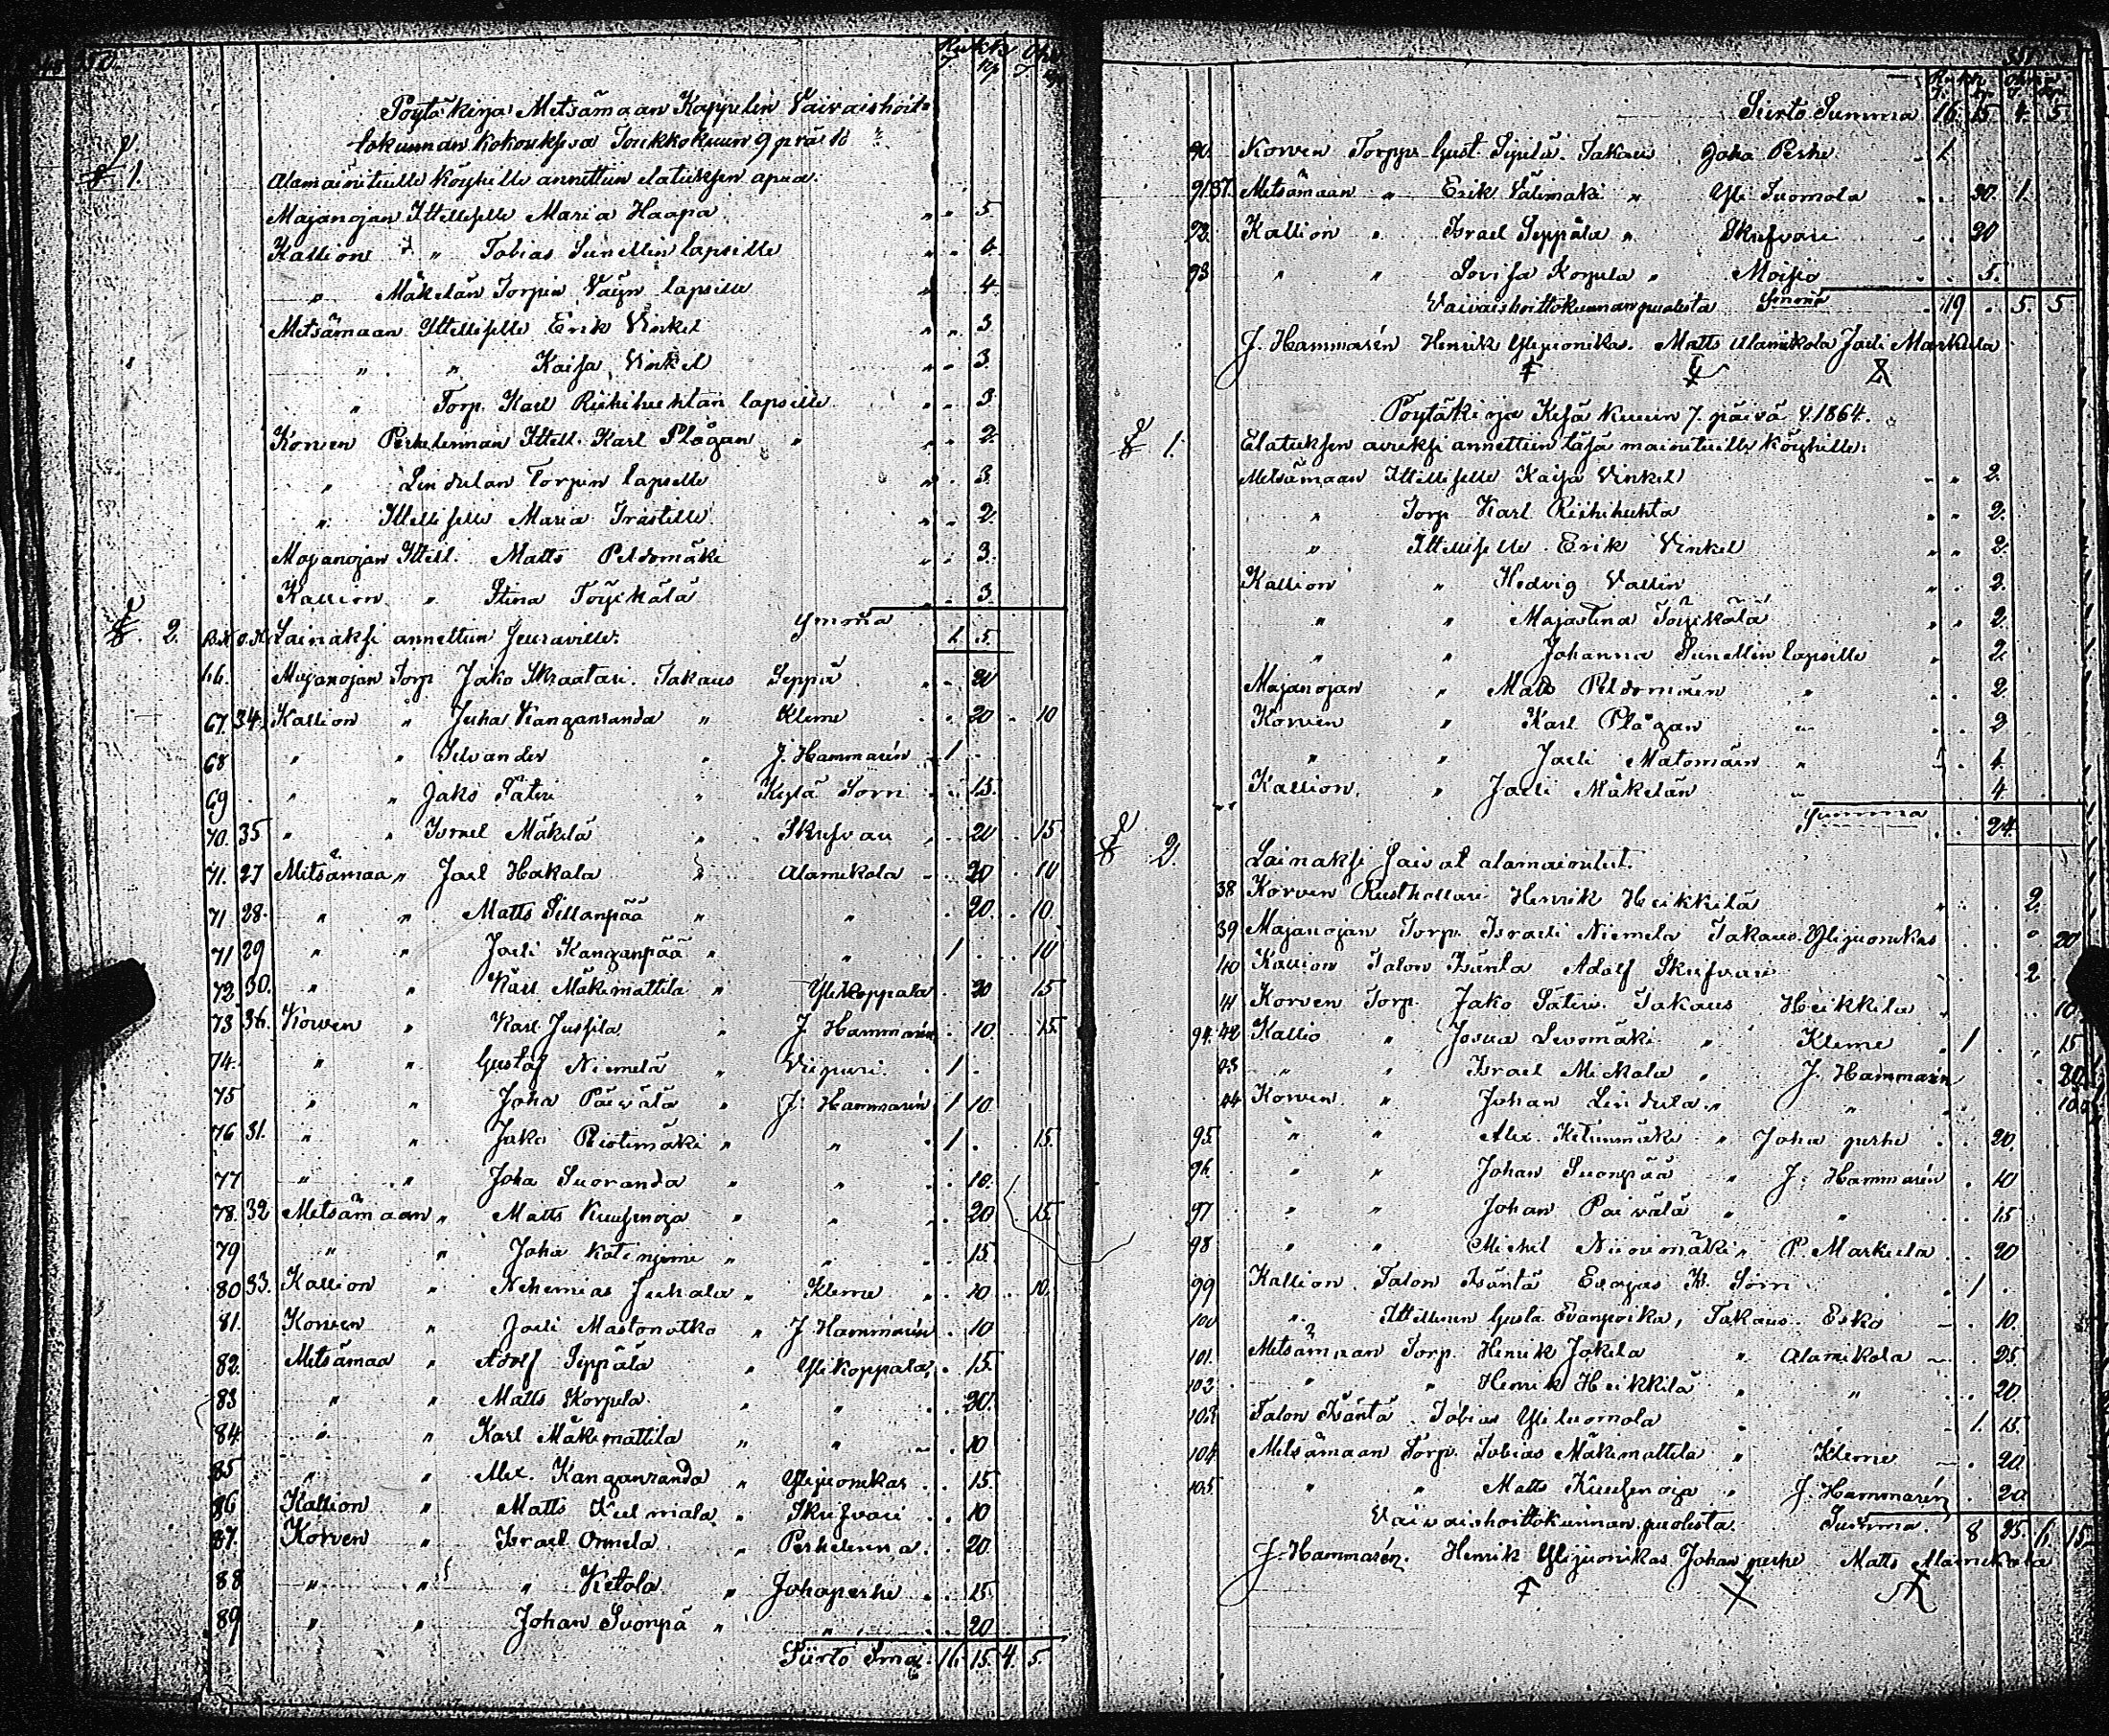 Rukita Ohra
T kp T kp
Pöytäkirja Metsämaan Kappelin Vaivaishoito
tokunnan kokouksesa Toukokuun 9 p:vä
§ 1. Alamainituille köyhille annettiin elatuksen apua.
Majanojan Ittelliselle Maria Haapa " " 5
Kallion " Tobias Sunellin lapsille " " 4
" Mäkelän Torpin Väyn lapsille " 4
Metsämaan Ittelliselle Erik Vinkel " " 3
" " Kaisa Vinkel " " 3
" Torp. Karl Riihihuhtan lapsille " " 3
Korven Perkelunnan Ittell. Karl Plågan " " " 2
" Lindulan Torpin lapselle " " 3
" Ittelliselle Maria Trastille " " 2
Majanojan Ittell. Matts Peldomäki " " 3
Kallion " Stina Töyikälä " 3
Summa
§ 2. R.N. O.N. Lainaksi annettiin Seuraville: 1 5
66. Majanojan Torp Jako Skraatari. Takaus Seppä " " 20
67. 34. Kallion " Juha Kanganranda " Kleme . . 20 . 10
68 " " Silvander " J. Hammarén . 1 .
69 " " Jako Sätiri " Kylä Sorri . . 15.
70. 35 " " Israel Mäkilä " Skrifvari . 20 . 15
71. 27 Metsämaa " Joel Hakala " Alamikola . . 20 . 10
71 28. " " Matts Sillanpää " " . 20 . 10.
71 29 " " Joeli Kanganpää " " . 1 . . 10
72 30. " " Karl Mäkimattila " Ylikoppala . 20 . 15
73 36. Korven " Karl Jussila " J. Hammarén . 10 . 15.
74. " " Gustaf Niemelä " Viipuri . 1 .
75 " " Joha Päivälä " J. Hammarén 1 10.
76 31. " " Jako Riotimäki " " . 1 . . 15.
77 " " Joha Suoranda " " . . 10.
78. 32 Metsämaan " Matts Kuusenoja " " . . 20 . 15.
79 " " Joha Katinniemi " " . . 15.
80 33. Kallion " Nehemias Juhala " Kleme . . 10 . . 10.
81. Korven " Joeli Mastonotko " J Hammarén . 10
82. Metsämaa " Adolf Sippälä " Ylikoppala . 15.
83 " " Matts Korpela " " . . 20.
84 " " Karl Mäkimattila " " . . 10
85 " " Alex. Kanganranda " Ylijuonikas . . 15.
86 Kallion " Matts Kulmala " Skrifvari . . 10
87. Korven " Israel Onnela " Perkelunna . 20
88 " " " Ketola " Johaperhe . . 15.
89 " " Johan Suonpä " " . . 20
Siirto Sma. 16. 15 4. 5.
Siirto Summa 16. 15 4. 5
90. Korven Torppr. Gust. Sipilä. Takaus Joha Perhe . 1
91. 37. Metsämaan " Erik Välimäki " Yli Tuomola . . 30. 1.
92. Kallion " Israel Seppälä " Skrifvari . . 20
93 " " Lovisa Korpela " Moisio . . 5.
Vaivaishoittokunnan puolesta Summa . 19 . 5. 5
J. Hammarén Henrik Ylijuonikas. Matts Alamikola Joeli Markula
Pöytäkirja Kesäkuun 7. päivä v. 1864.
§ 1. Elatuksen avuksi annettiin täsä mainituille Köyhille:
Metsämaan Ittelliselle Kaisa Vinkel " " 2.
" Torp Karl Riihihuhta " " 2.
" Ittelliselle Erik Vinkel " " 2.
Kallion " Hedvig Vallin " . 2.
" " Majastina Töyikälä " " 2.
" " Johanna Sunellin lapsille " 2.
Majanojan " Matts Peldomäen " . . 2.
Korven " Karl Plågan " . . 2
" " Joeli Matomäen " . 4.
Kallion " Joeli Mäkelän " 4
Summa . . 24.
§ 2. Lainaksi Saivat alamainitut.
38 Korven Rusthollari Henrik Heikkilä . . . 2.
39 Majanojan Torp. Israeli Niemelä Takaus Ylijuonikas . . . 20
40 Kallion Talon Isäntä Adolf Skrifvari . . 2
41 Korven Torp. Jako Sätiri. Takaus Heikkilä . . . 10
94. 42 Kallio " Josua Levomäki " Kleme . 1 . . 15
43 " " Israel Mickola " J. Hammarén . 20.
44 Korven " Johan Lindula " " . 10
95. " " Alex. Ketunmäki " Joha perhe . . 20.
96. " " Johan Suonpää " J. Hammarén . 10
97 " " Johan Päivälä " " . . 15
98 " " Michel Niinimäki " P. Markula . . 20
99 Kallion Talon Isäntä Esajas K. Sorri . 1 .
100 " Ittellinen Gusta Evanpoika, Takaus Esko . . 10.
101. Metsämaan Torp. Henrik Jokela " Alamikola . . 25.
102. " " Henrik Heikkilä " " . . 20.
103. Talon Isäntä Tobias Yli tuomola . 1. 15.
104. Metsämaan Torp. Tobias Mäkimattila " Kleme . . 20.
105 " " Matts Kuusenoja " J. Hammarén . 20
Vaivaishoittokunnan puolesta. Summa. 8 25. 6. 15.
J. Hammarén. Henrik Ylijuonikas Johan perhe Matts Alamikola